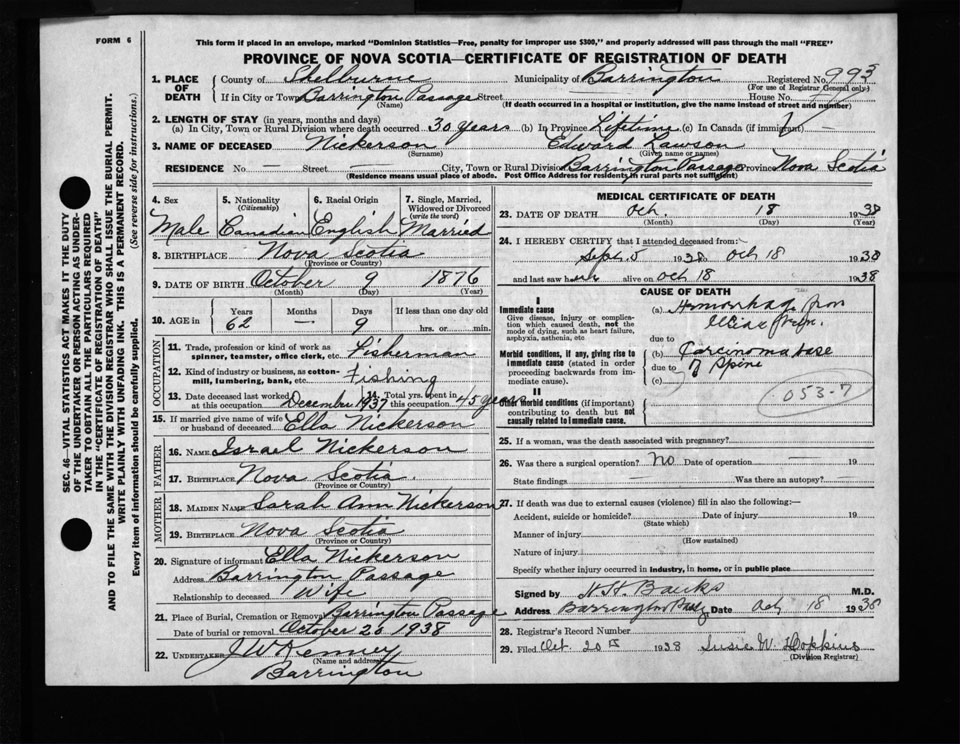 FORM 6
This form if placed in an envelope, marked "Dominion Statistics—Free, penalty for improper use $300," and properly addressed will pass through the mail "FREE"
PROVINCE OF NOVA SCOTIA—CERTIFICATE OF REGISTRATION OF DEATH
1. PLACE OF DEATH County of Shelburne Municipality of Barrington Registered No. 993
(For use of Registrar General only)
If in City or Town Barrington Passage Street House No.
(Name) (If death occurred in a hospital or institution, give the name instead of street and number)
2. LENGTH OF STAY (in years, months and days)
(a) In City, Town or Rural Division where death occurred 30 years (b) In Province Lifetime (c) In Canada (if immigrant) —
3. NAME OF DECEASED Nickerson Edward Lawson
(Surname) (Given name or names)
RESIDENCE No — Street City, Town or Rural Division Barrington Passage Province Nova Scotia
(Residence means usual place of abode. Post Office Address for residents in rural parts not sufficient)
4. Sex 5. Nationality (Citizenship) 6. Racial Origin 7. Single, Married, Widowed or Divorced (write the word)
Male Canadian English Married
8. BIRTHPLACE Nova Scotia
(Province or Country)
9. DATE OF BIRTH October 9 1876
(Month) (Day) (Year)
10. AGE in Years Months Days If less than one day old
62 — 9 hrs. or min.
OCCUPATION
11. Trade, profession or kind of work as spinner, teamster, office clerk, etc. Fisherman
12. Kind of industry or business, as cotton-mill, lumbering, bank, etc. Fishing
13. Date deceased last worked at this occupation December 1937 14. Total yrs. spent in this occupation 45 years
15. If married give name of wife or husband of deceased Ella Nickerson
FATHER
16. NAME Israel Nickerson
17. BIRTHPLACE Nova Scotia.
(Province or Country)
MOTHER
18. MAIDEN NAME Sarah Ann Nickerson
19. BIRTHPLACE Nova Scotia
(Province or Country)
20. Signature of informant Ella Nickerson
Address Barrington Passage
Relationship to deceased Wife
21. Place of Burial, Cremation or Removal Barrington Passage
Date of burial or removal October 20 1938
22. UNDERTAKER J W Kenney
(Name and address)
Barrington
MEDICAL CERTIFICATE OF DEATH
23. DATE OF DEATH Oct. 18 1938
(Month) (Day) (Year)
24. I HEREBY CERTIFY that I attended deceased from:
Sept. 5 1938 Oct 18 1938
and last saw him alive on Oct 18 1938
CAUSE OF DEATH
I
Immediate cause
Give disease, injury or complication which caused death, not the mode of dying, such as heart failure, asphyxia, asthenia, etc
(a) Hemorrhage from
due to
Morbid conditions, if any, giving rise to immediate cause (stated in order proceeding backwards from immediate cause).
(b) Carcinoma base
due to of Spine
(c)
053-7
II
Other morbid conditions (if important) contributing to death but not causally related to immediate cause.
25. If a woman, was the death associated with pregnancy?
26. Was there a surgical operation? No Date of operation — 19
State findings Was there an autopsy? —
27. If death was due to external causes (violence) fill in also the following:—
Accident, suicide or homicide? Date of injury 19
(State which)
Manner of injury
(How sustained)
Nature of injury
Specify whether injury occurred in industry, in home, or in public place
Signed by H. H. Banks M.D.
Address Barrington Passage Date Oct 18 1938
28. Registrar's Record Number
29. Filed Oct. 20 1938 Susie W. Hopkins
(Division Registrar)
SEC. 46—VITAL STATISTICS ACT MAKES IT THE DUTY
OF THE UNDERTAKER OR PERSON ACTING AS UNDERTAKER TO OBTAIN ALL THE PARTICULARS REQUIRED
IN THE "CERTIFICATE OF REGISTRATION OF DEATH"
AND TO FILE THE SAME WITH THE DIVISION REGISTRAR WHO SHALL ISSUE THE BURIAL PERMIT.
WRITE PLAINLY WITH UNFADING INK. THIS IS A PERMANENT RECORD.
Every item of information should be carefully supplied. (See reverse side for instructions.)